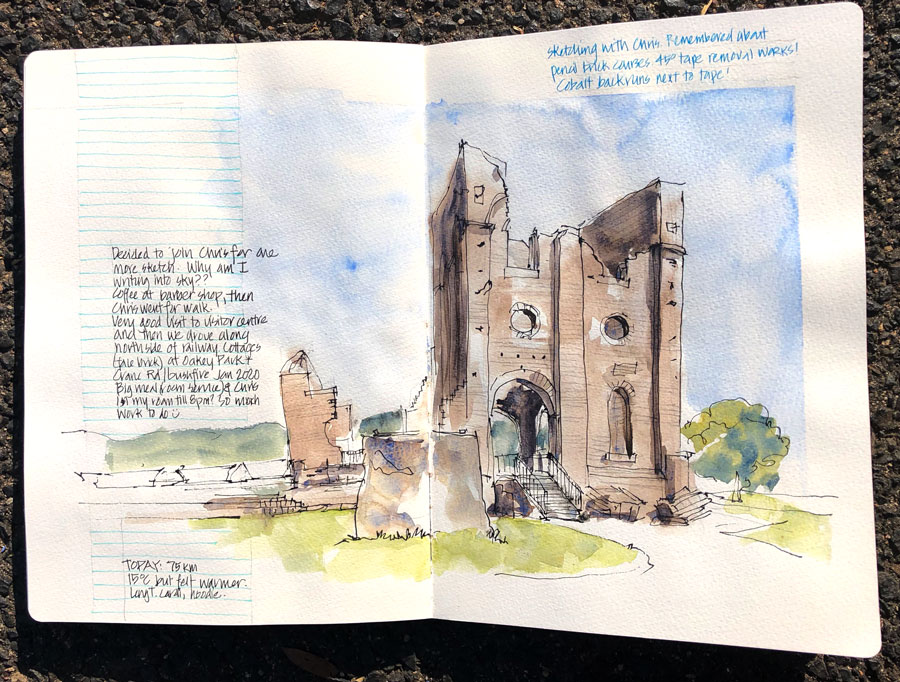 Sketching with Chris. Remembered about
pencil brick courses 45° tape removal works!
Cobalt backruns next to tape!
Decided to join Chris for one
more sketch. Why am I
writing into sky??
Coffee at barber shop, then
Chris went for walk.
Very good visit to visitor centre
and then we drove along
northside of railway Cottages
(pale brick) at Oakey Park +
Crane Rd/bushfire Jan 2020
Big meal (room service) & Chris
in my room till 8pm? So much
work to do
TODAY: 75km
15°C but felt warmer.
Long T. Cardi, hoodie.